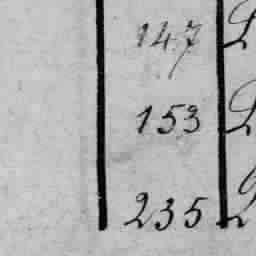 147
153
235